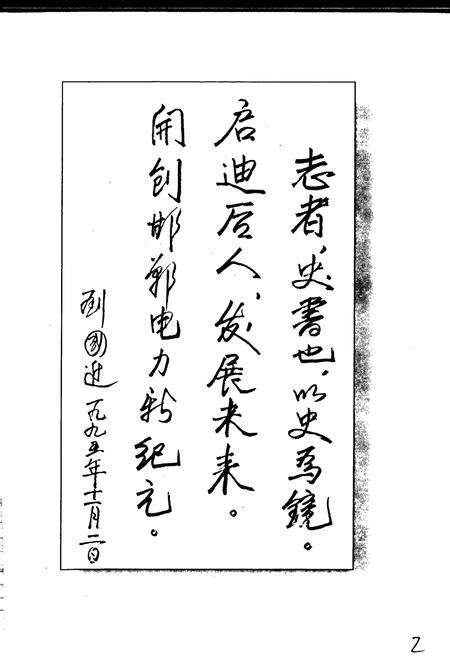 志者，史书也，以史为镜。
启迪后人，发展未来。
開创邯郸电力新纪元。
刘国进 一九九五年十一月二日
2